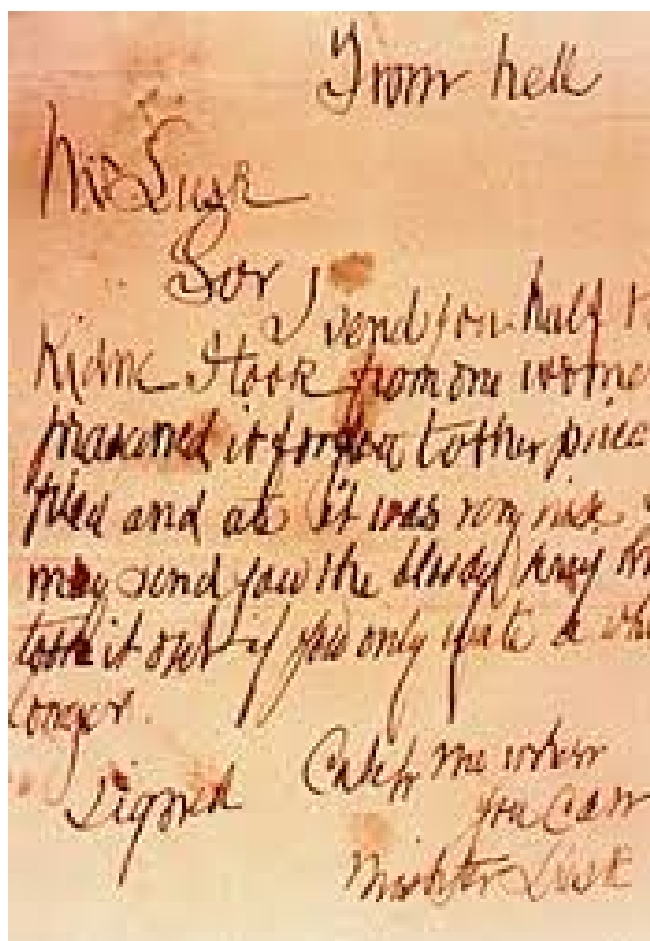 From hell
Mr Lusk
Sor
I send you half
Kidne I took from one wome
prasarved it for you tother piec
fried and ate it was very nise
may send you the bloody knif
took it out if you only wate a wh
longer.
signed Catch me when
you Can
Mishter Lusk